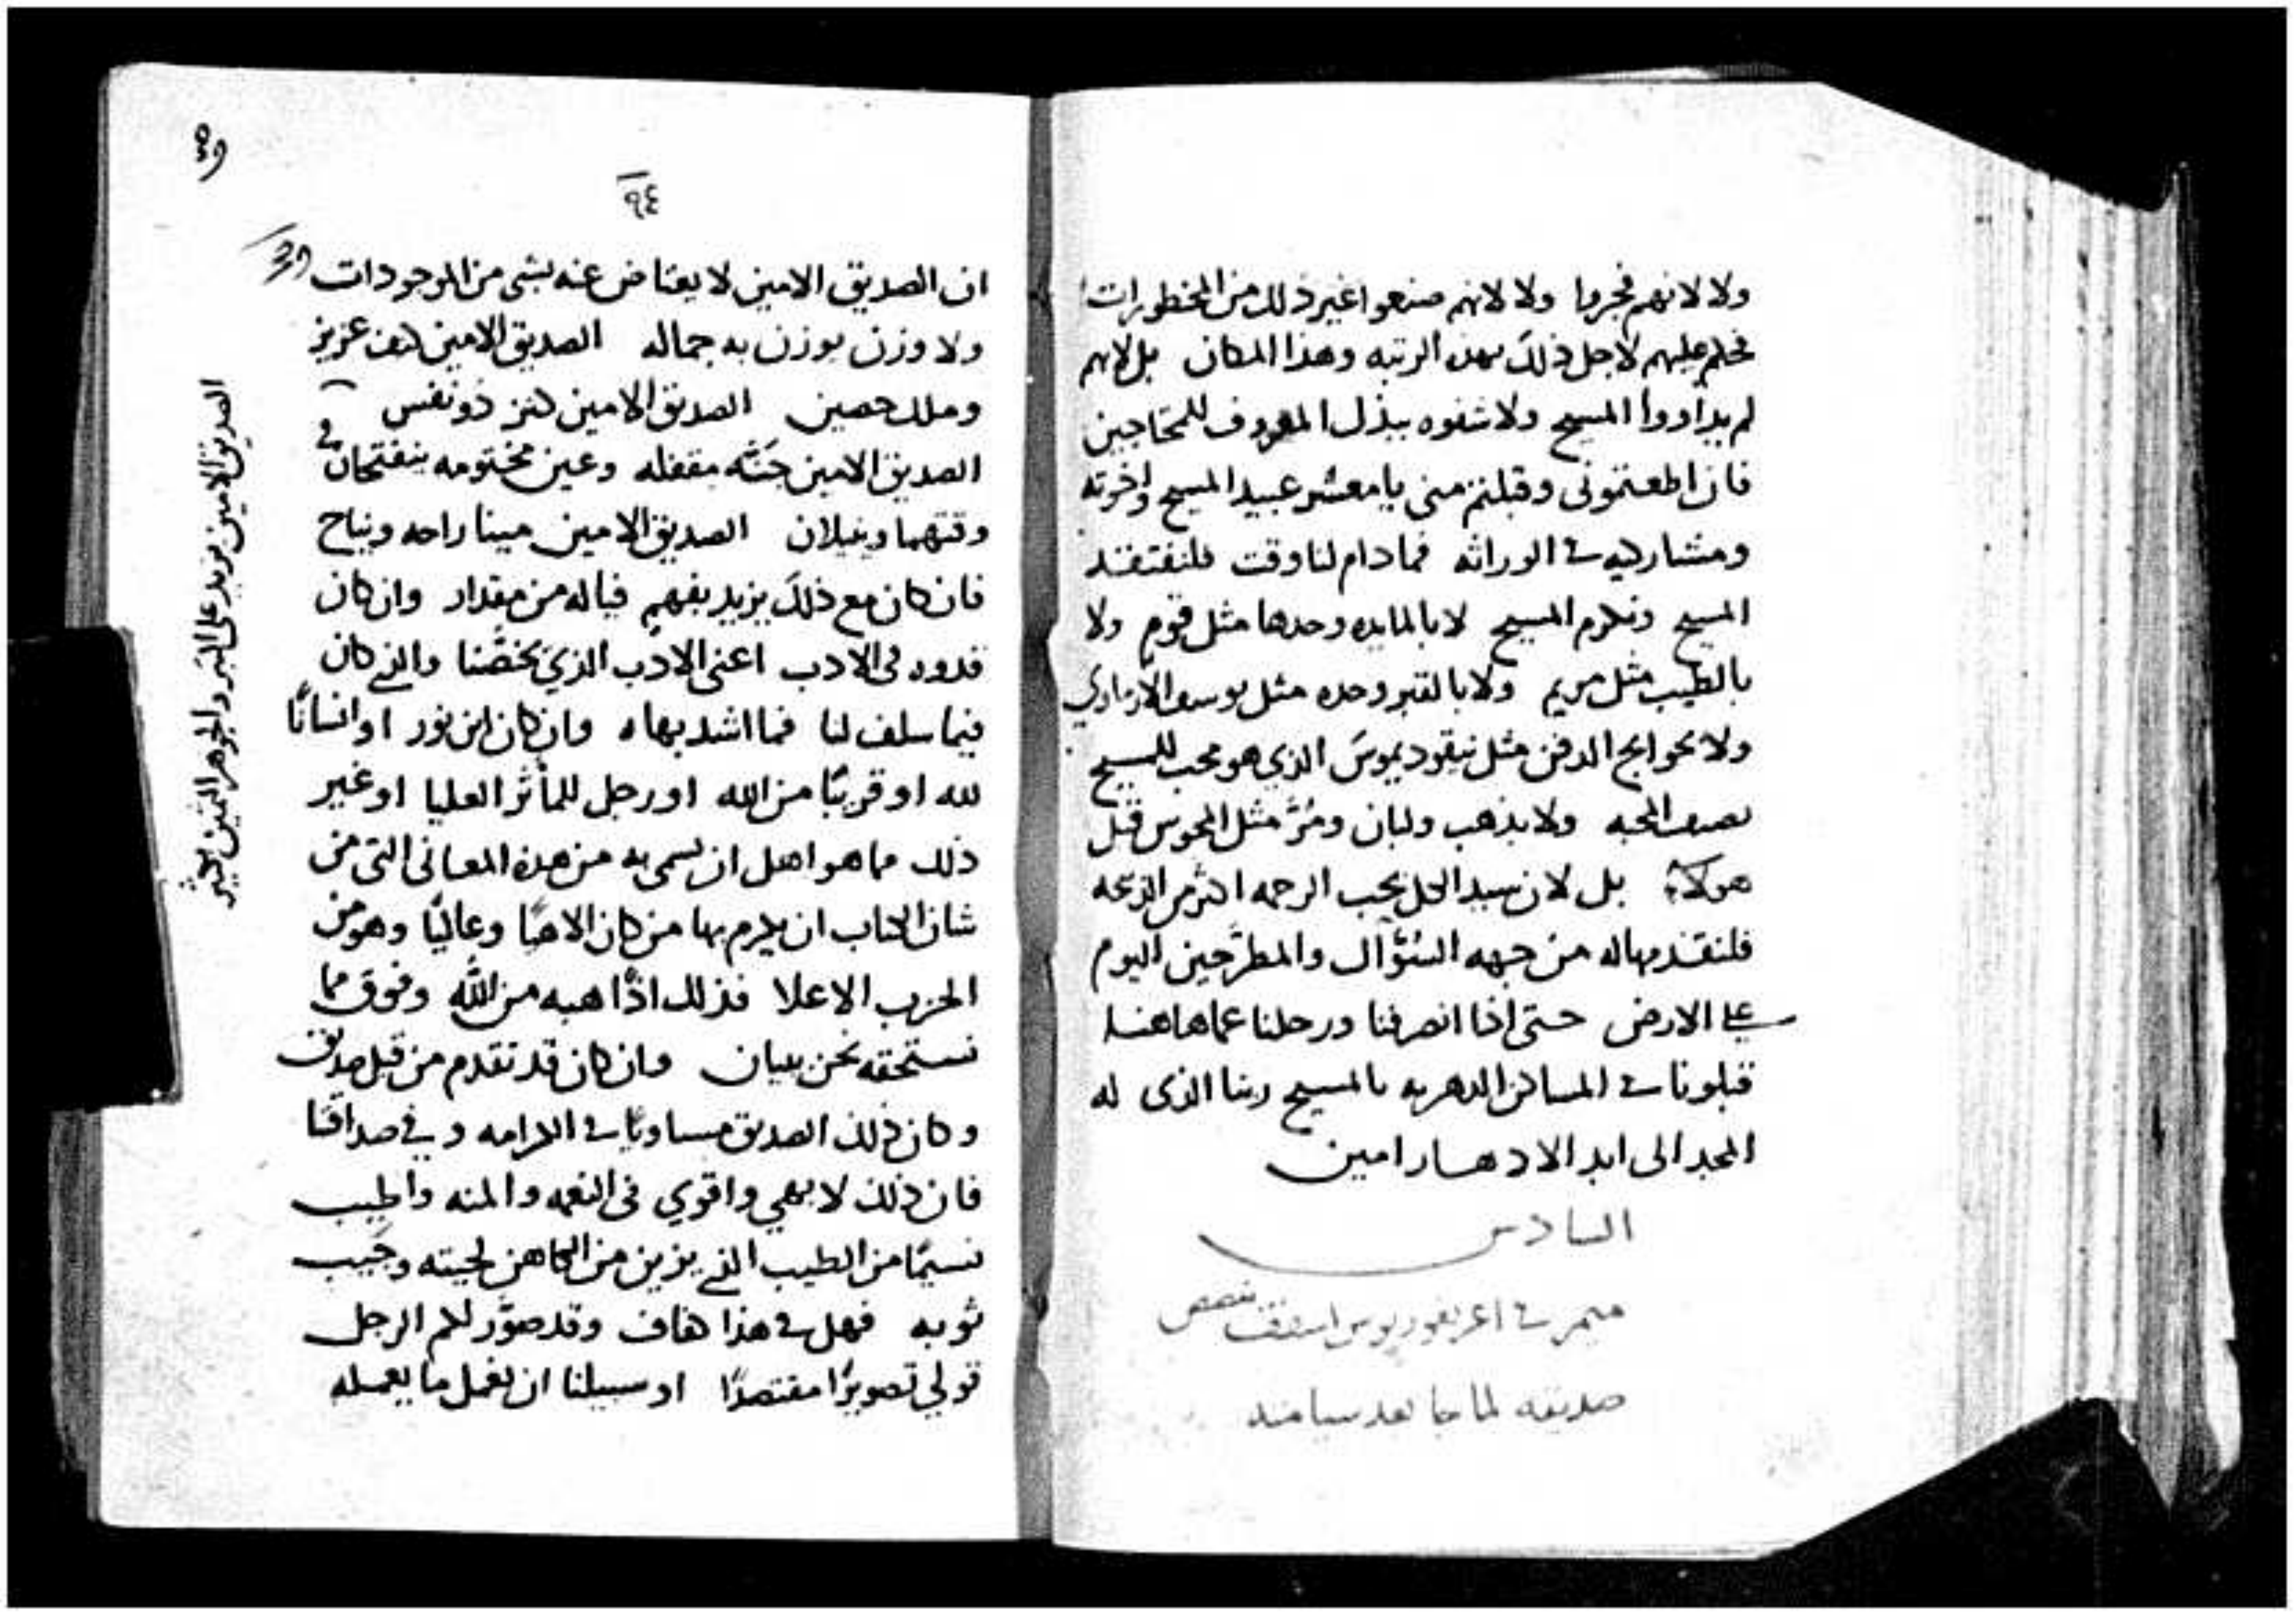 ولا لانهم فجروا ولا لانهم صنعوا غير ذلك من المحظورات
فحكم عليهم لاجل ذلك بهذه الرتبه وهذا المكان بل لانهم
لم يداووا المسيح ولا شفوه ببذل المعروف للمحتاجين
فان اطعتموني وقبلتم مني يا معشر عبيد المسيح واخوته
ومشاركيه في الوراثه فما دام لنا وقت فلنفتقد
المسيح ونكرم المسيح لا بالمايده وحدها مثل قوم ولا
بالطيب مثل مريم ولا بالقبر وحده مثل يوسف الارمادي
ولا بحوايج الدفن مثل نيقوديموس الذي هو محب للمسيح
بنصف المحبه ولا بذهب ولبان ومُرّ مثل المجوس قبل
هولاء بل لان سيد الكل يحب الرحمه اكثر من الذبحه
فلنقدمها له من جهه السُؤّال والمطرَّحين اليوم
على الارض حتى اذا انصرفنا ورحلنا عما هاهنا
قبلونا في المساكن الدهريه بالمسيح ربنا الذى له
المجد الى ابد الادهار امين
السادس
ميمر في اغريغوريوس اسقف
صديقه لما جا بعد سيامته
٩٤
ان الصديق الامين لا يعتاض عنه بشي من الموجودات
ولا وزن يوزن به جماله الصديق الامين كنف عزيز
وملك حصين الصديق الامين كنز ذو نفس
الصديق الامين جَنَّه مقفله وعين مختومه ينفتحان في
وقتهما وينيلان الصديق الامين مينا راحه ونياح
فان كان مع ذلك يزيد بفهم فياله من مقدار وان كان
قدوه في الادب اعني الادب الذي يخصّنا والذي كان
فيما سلف لنا فما اشد بهاه وان كان ابن نور او انسانًا
لله او قريبًا من الله او رجل للمآثر العليا او غير
ذلك مما هو اهل ان يسمى به من هذه المعانى التى من
شان الكتاب ان يكرم بها من كان الاهيًا وعاليًا وهو من
الحزب الاعلا فذلك اذًا هبه من الله وفوق مما
نستحقه نحن ببيان وان كان قد تقدم من قبل صديق
وكان ذلك الصديق مساويًا في الكرامه وفي صداقتنا
فان ذلك لابهي واقوي فى النعمه والمنه واطيب
نسيمًا من الطيب الذي يزين من الكاهن لحيته وجَيب
ثوبه فهل في هذا كفاف وقد صوّر لكم الرجل
قولي تصويرًا مقتصدًا او سبيلنا ان نعمل ما يعمله
الصديق الامين يزيد على التبر والجوهر الثمين بكثير